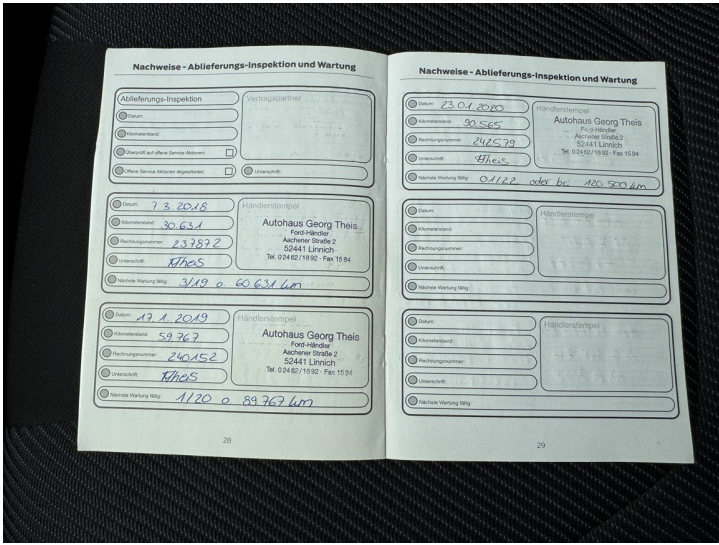 Nachweise - Ablieferungs-Inspektion und Wartung
Ablieferungs-Inspektion
Vertragspartner
Datum:
Kilometerstand:
Überprüft auf offene Service Aktionen:
Offene Service Aktionen abgearbeitet:
Unterschrift:
Datum: 7.3.2018
Kilometerstand: 30.631
Rechnungsnummer: 237872
Unterschrift: Theis
Nächste Wartung fällig: 3/19 o. 60.631 km
Händlerstempel
Autohaus Georg Theis
Ford-Händler
Aachener Straße 2
52441 Linnich
Tel. 0 24 62 / 18 92 · Fax 15 94
Datum: 17.1.2019
Kilometerstand: 59.767
Rechnungsnummer: 240152
Unterschrift: Theis
Nächste Wartung fällig: 1/20 o 89.767 km
Händlerstempel
Autohaus Georg Theis
Ford-Händler
Aachener Straße 2
52441 Linnich
Tel. 0 24 62 / 18 92 · Fax 15 94
28
Nachweise - Ablieferungs-Inspektion und Wartung
Datum: 23.01.2020
Kilometerstand: 90.565
Rechnungsnummer: 242579
Unterschrift: Theis
Nächste Wartung fällig: 01/22 oder bei 120 500 km
Händlerstempel
Autohaus Georg Theis
Ford-Händler
Aachener Straße 2
52441 Linnich
Tel. 0 24 62 / 18 92 · Fax 15 94
Datum:
Kilometerstand:
Rechnungsnummer:
Unterschrift:
Nächste Wartung fällig:
Händlerstempel
Datum:
Kilometerstand:
Rechnungsnummer:
Unterschrift:
Nächste Wartung fällig:
Händlerstempel
29